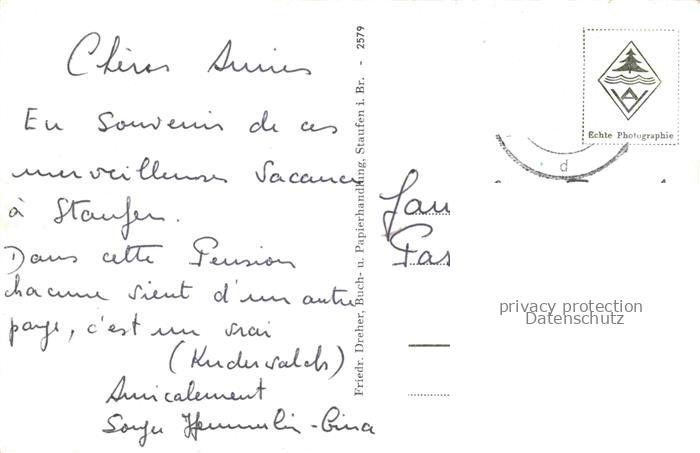 Chères Amies
En Souvenir de ces
merveilleuses vacances
à Staufen.
Dans cette Pension
chacune vient d'un autre
pays, c'est un vrai
Amicalement
Friedr. Dreher, Buch- u. Papierhandlung, Staufen i. Br. - 2579
Echte Photographie
d
privacy protection
Datenschutz